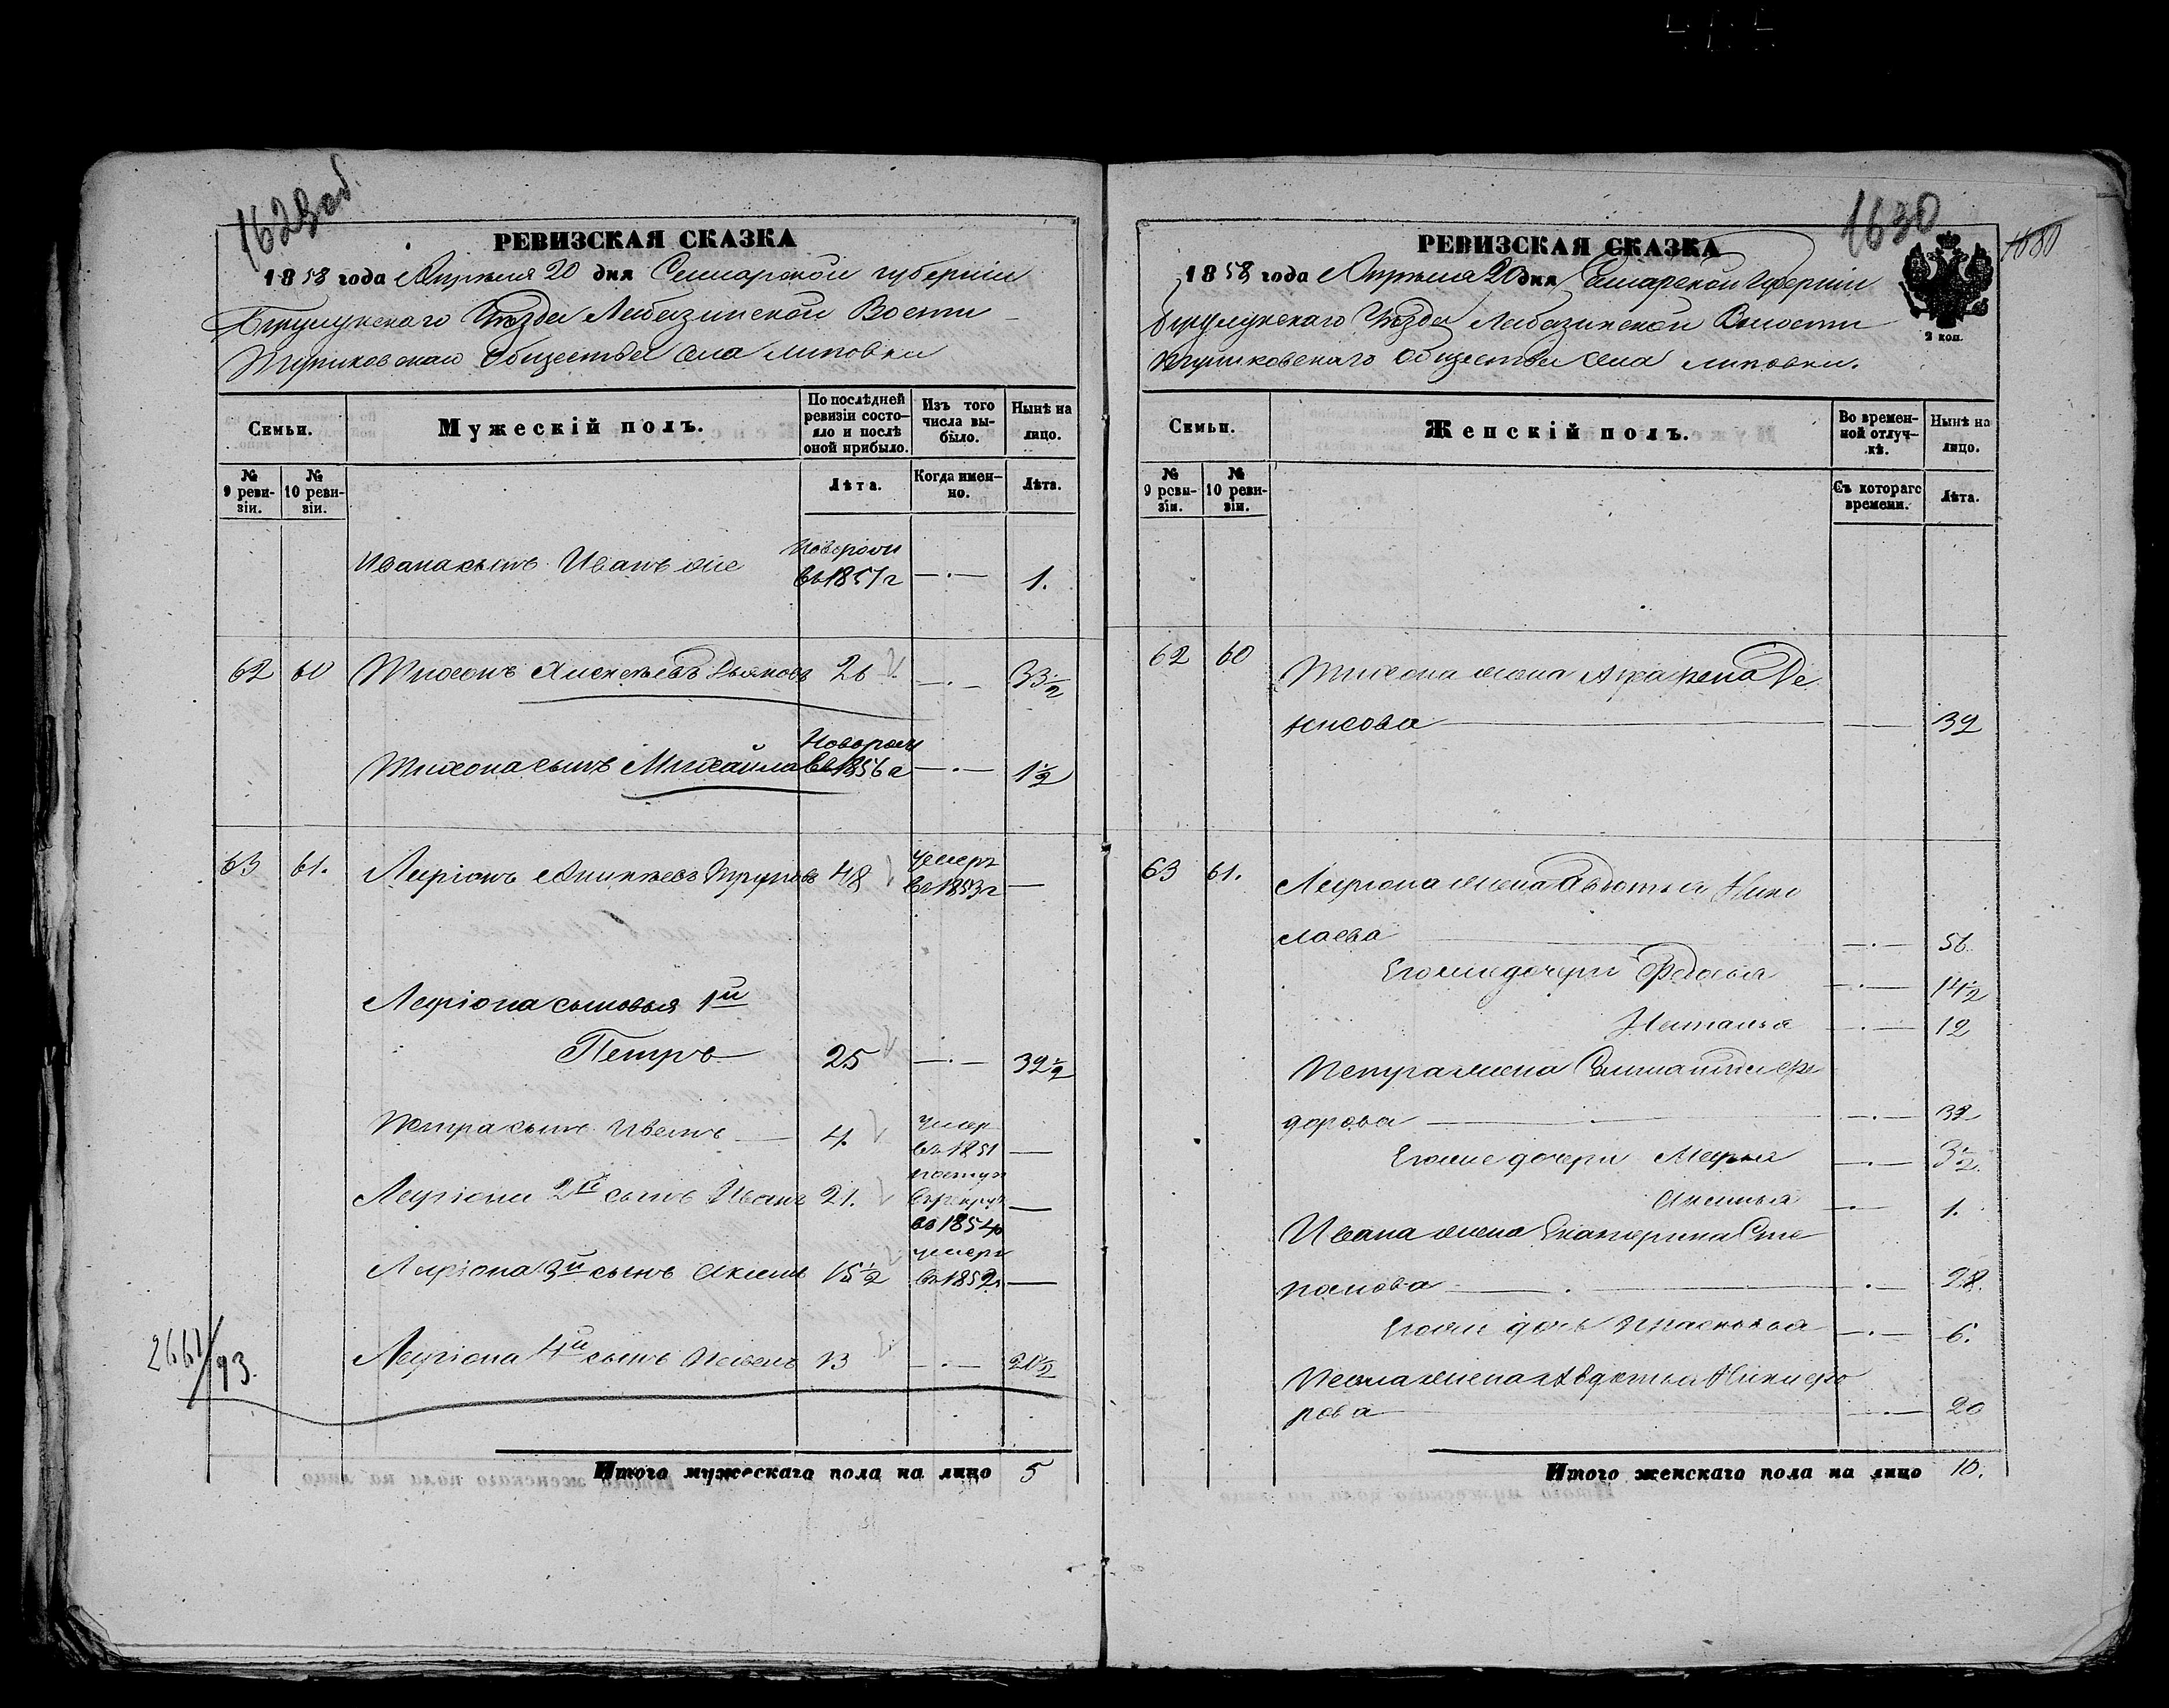 1629об.
РЕВИЗСКАЯ СКАЗКА
1858 года Апреля 20 дня Самарской губернии
Бузулукскаго Уѣзда Лабазинской Волости
Общества села Липовки
Семьи.
Мужескій полъ.
По послѣдней ревизіи состояло и послѣ оной прибыло.
Изъ того числа выбыло.
Нынѣ на лицо.
№ 9 ревизіи.
№ 10 ревизіи.
Лѣта.
Когда именно.
Лѣта.
Ивана сынъ Иванъ же Новорож въ 1857г 1.
62 60 Тихонъ Алексѣевъ Дьяковъ 26 33½
Тихона сынъ Михайла Новорож въ 1856г 1½
63 61. Ларіонъ 48 умеръ въ 1853г —
Ларіона сыновья 1й
Петръ 25 32½
Петра сынъ Иванъ 4. умер въ 1851 —
Ларіона 2й сынъ Иванъ 21. поступ в рекрут в 1854г —
Ларіона 3й сынъ Акимъ 15½ умеръ въ 1852г —
Ларіона 4й сынъ 13 21½
2661/93.
Итого мужескаго пола на лицо 5
1630
1630
РЕВИЗСКАЯ СКАЗКА
1858 года Апреля 20 дня Самарской Губерніи
Бузулукскаго Уѣзда Лабазинской Волости
Общества села Липовки.
2 коп.
Семьи.
Женскій полъ.
Во временной отлучкѣ.
Нынѣ на лицо.
№ 9 ревизіи.
№ 10 ревизіи.
Съ котораго времени.
Лѣта.
62 60 Тихона жена Аграфена Де
нисова 39
63 61. Ларіона жена Авдотья Нико
лаева 56.
Его же дочери Федосья 14½
Наталья 12
Петра жена Фе
дорова 32
Его же дочери Марья 3½.
Аксинья 1.
Ивана жена Екатерина Сте
панова 28.
Его же дочь Прасковья 6.
жена Авдотья Никифо
рова 20
Итого женскаго пола на лицо 10.